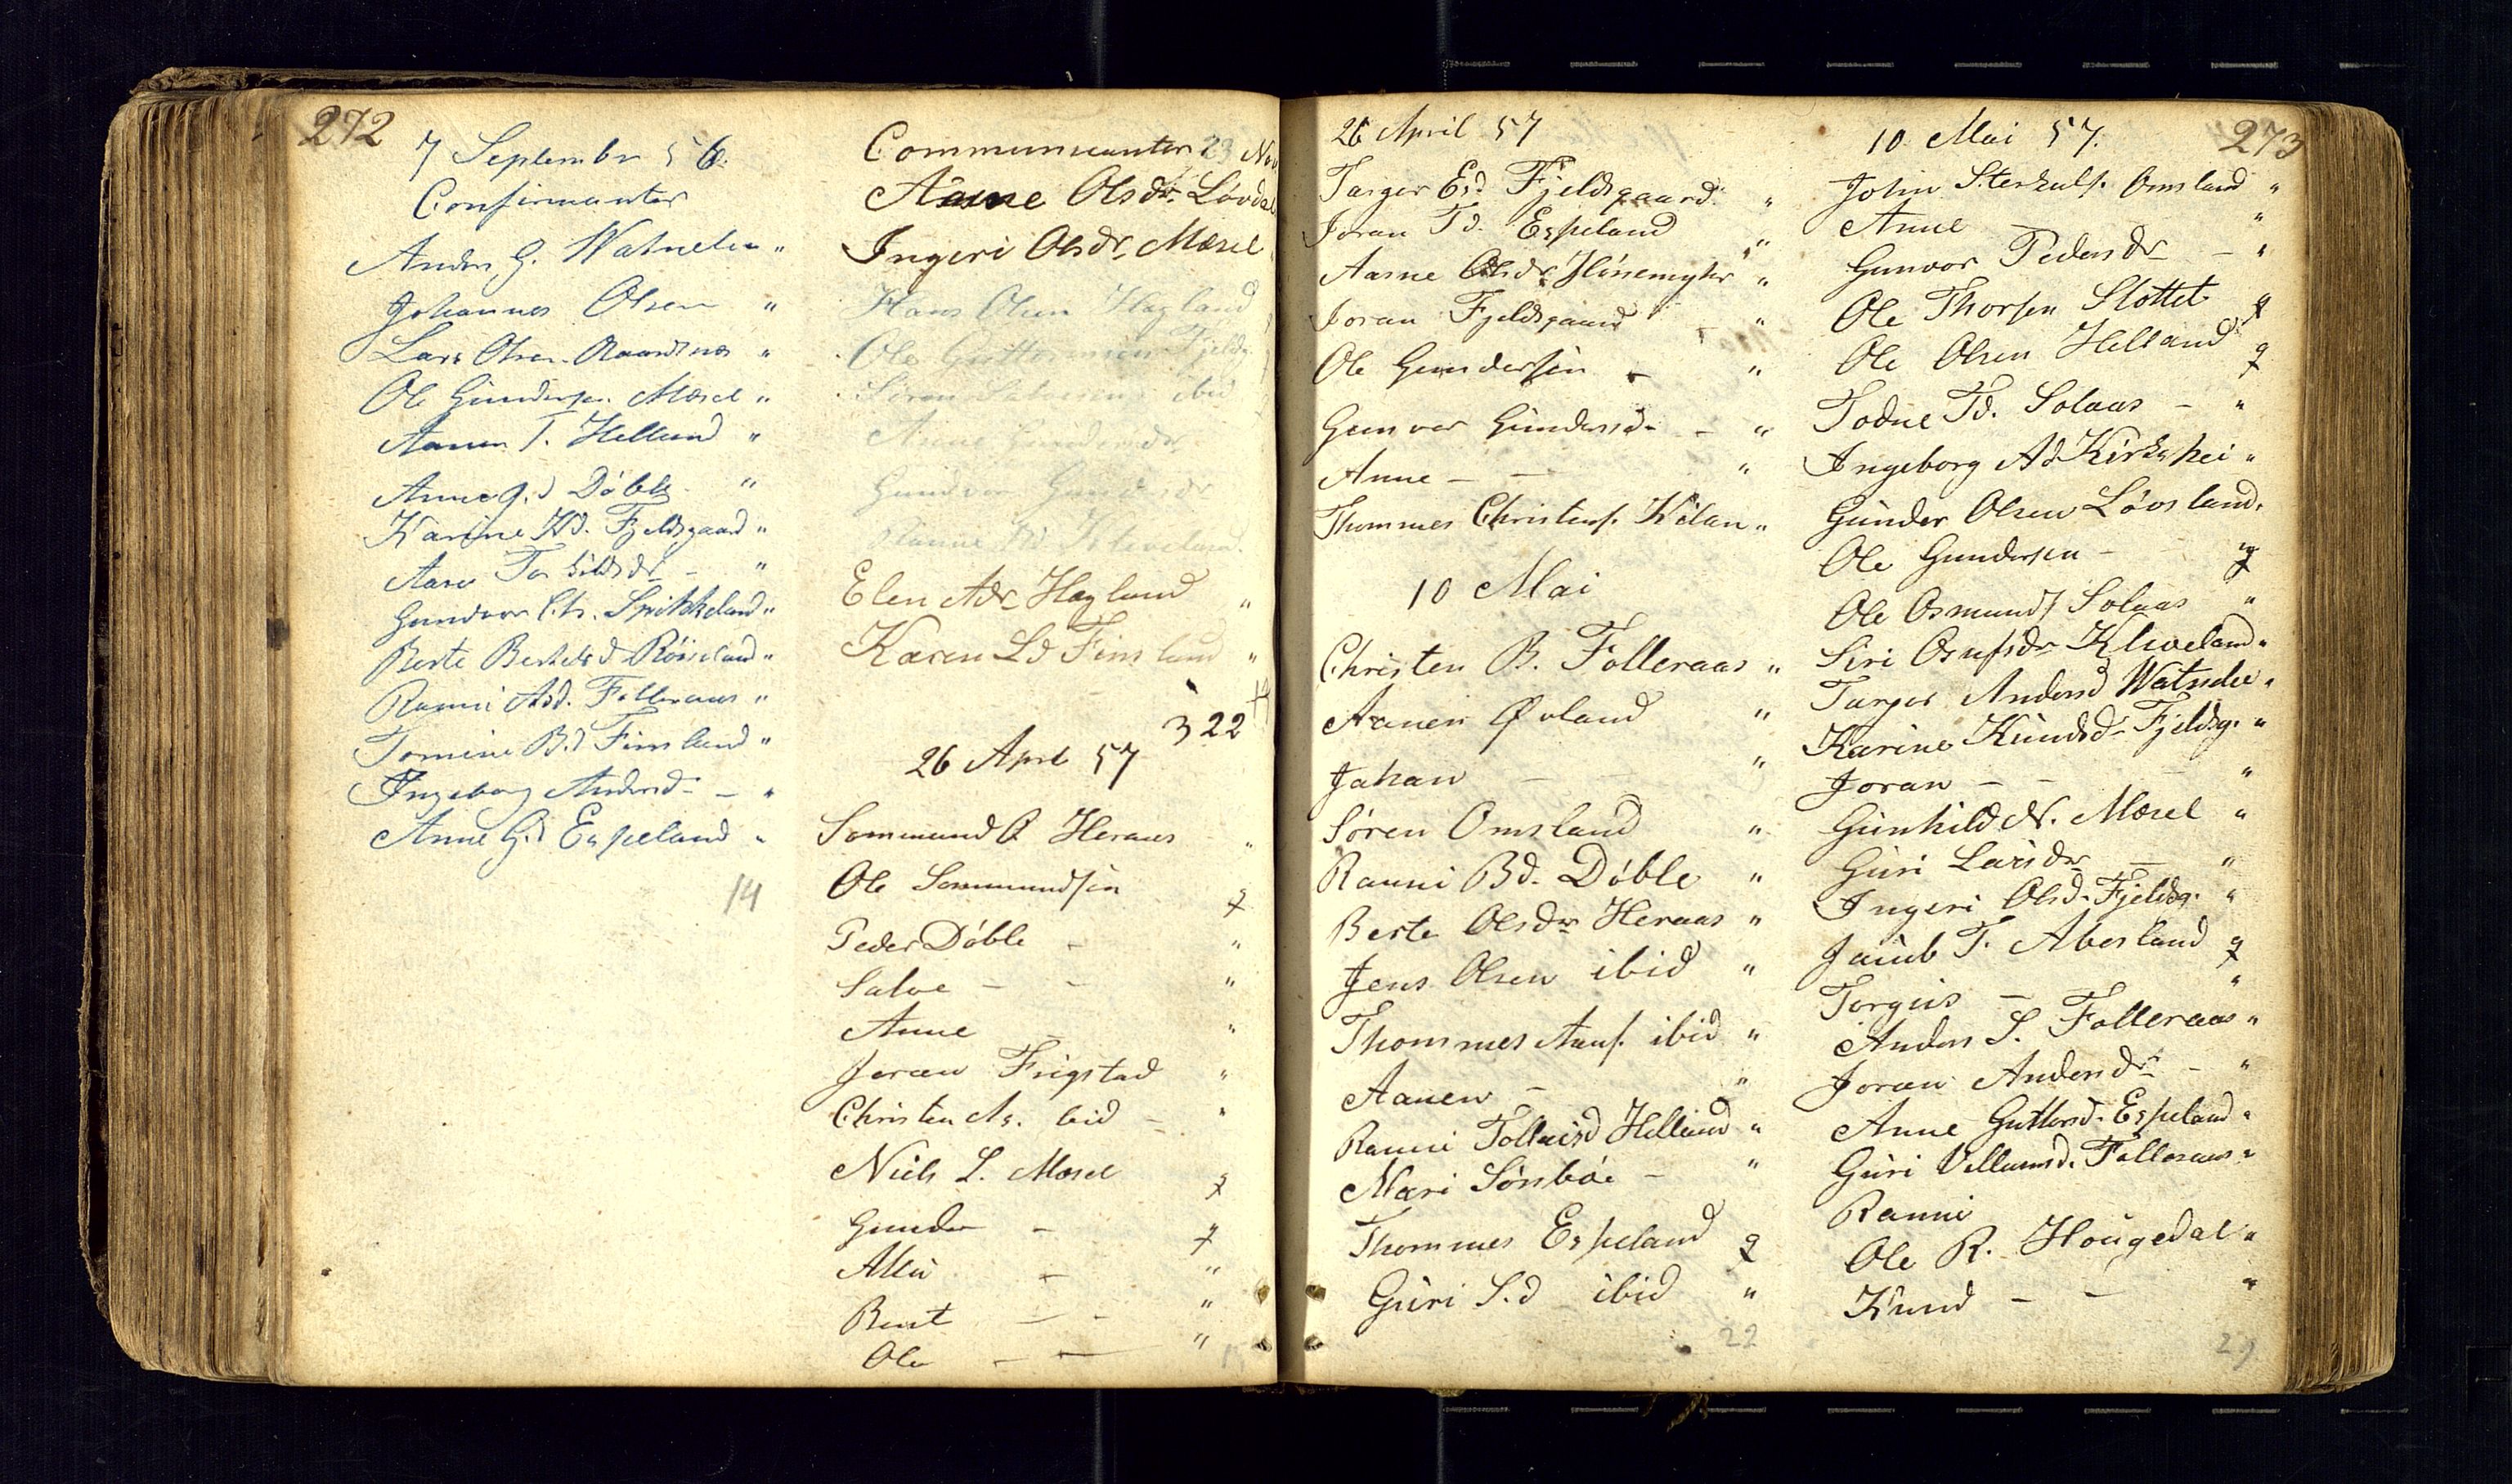 272
7 September 56.
Confirmanter
Anders G. Watnelien "
Johannes Olsen "
Lars Olsen "
Ole Gundersen Mæsel "
Aanen T. Helland "
Anne G.d Døble "
Karine Kd. Fjeldsgaard "
Aase Torkildsdr - "
Gundvor Chr. Spikkeland "
Berte Bertelsd Røiseland "
Ranni Asd. Folleraas "
Tomine B.d Fimland "
Ingeborg Andersd - - "
Anne G.d Espeland "
14
Communicanter 23 Nov
Aasne Olsdr. Løvdal
Ingeri Olsdr, Mæsel
Hans Olsen Hagland
Ole Guttormsen Fjeldg.
Søren Salvesen ibid
Anne Gundersdr
Gundvor Gundersdr
Kleveland
Elen Adr Hagland "
Karen Ld Fimland "
322
26 April 57
Sommund O Heraas "
Ole Sommundsen
Peder Døble - "
Salve - - "
Anne - "
Joran Frigstad "
Christen As. ibid - "
Niels L. Mæsel
Gunder -
Atlei - "
Berit - - "
Ole - - "
26 April 57
Targer Esd Fjeldsgaard. "
Joran Td. Espeland "
Aasne Olsdr Hønemyhr "
Joran Fjeldsgaard - "
Ole Gundersen - "
Gunvor Gundersd - - "
Anne - - "
Thommes Christens. Kilan "
10 Mai
Christen B. Folleraas "
Aanen Øvland "
Johan - - "
Søren Omsland "
Ranni Bd. Døble "
Berte Olsdr Heraas "
Jens Olsen ibid "
Thommes Aans. ibid "
Aanen - "
Ranni Tolleisd Helland "
Mari Sønbøe - "
Thommes Espeland
Guri S.d ibid "
22
10 Mai 57.
273
John Sterkuls. Omsland "
Anne "
Gunvor Pedersdr - "
Ole Thorsen Slottet
Ole Olsen Helland
Todne Td. Solaas - "
Ingeborg Ad Kirkehei "
Gunder Olsen Løvsland "
Ole Gundersen -
Ole Osmunds Solaas "
Siri Osufsdr Kleveland "
Targer Andersd Watnelie "
Karine Knudsd Fjeldsg. "
Joran - - "
Gunhild N. Mæsel "
Guri Larsdr - "
Ingeri Olsd. Fjeldsg. "
Jacob T. Abesland
Torgus - "
Anders S. Folleraas "
Joran Andersdr - "
Anne Guttorsd. Espeland "
Guri Villumsd. Folleraas "
Ranni
Ole R. Hougedal "
Knud - - "
29